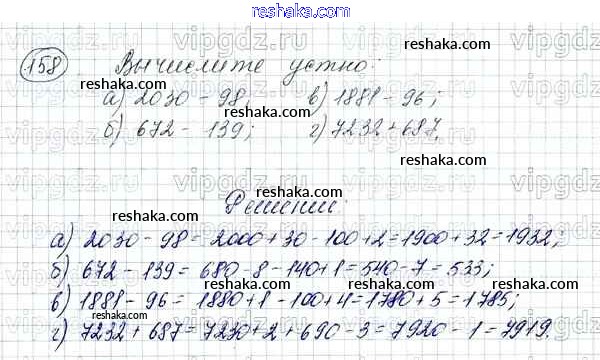 reshaka.com
158 Вычислите устно:
а) 2030 - 98; в) 1881 - 96;
б) 672 - 139; г) 7232 + 687.
Решение:
а) 2030 - 98 = 2000 + 30 - 100 + 2 = 1900 + 32 = 1932;
б) 672 - 139 = 680 - 8 - 140 + 1 = 540 - 7 = 533;
в) 1881 - 96 = 1880 + 1 - 100 + 4 = 1780 + 5 = 1785;
г) 7232 + 687 = 7230 + 2 + 690 - 3 = 7920 - 1 = 7919.